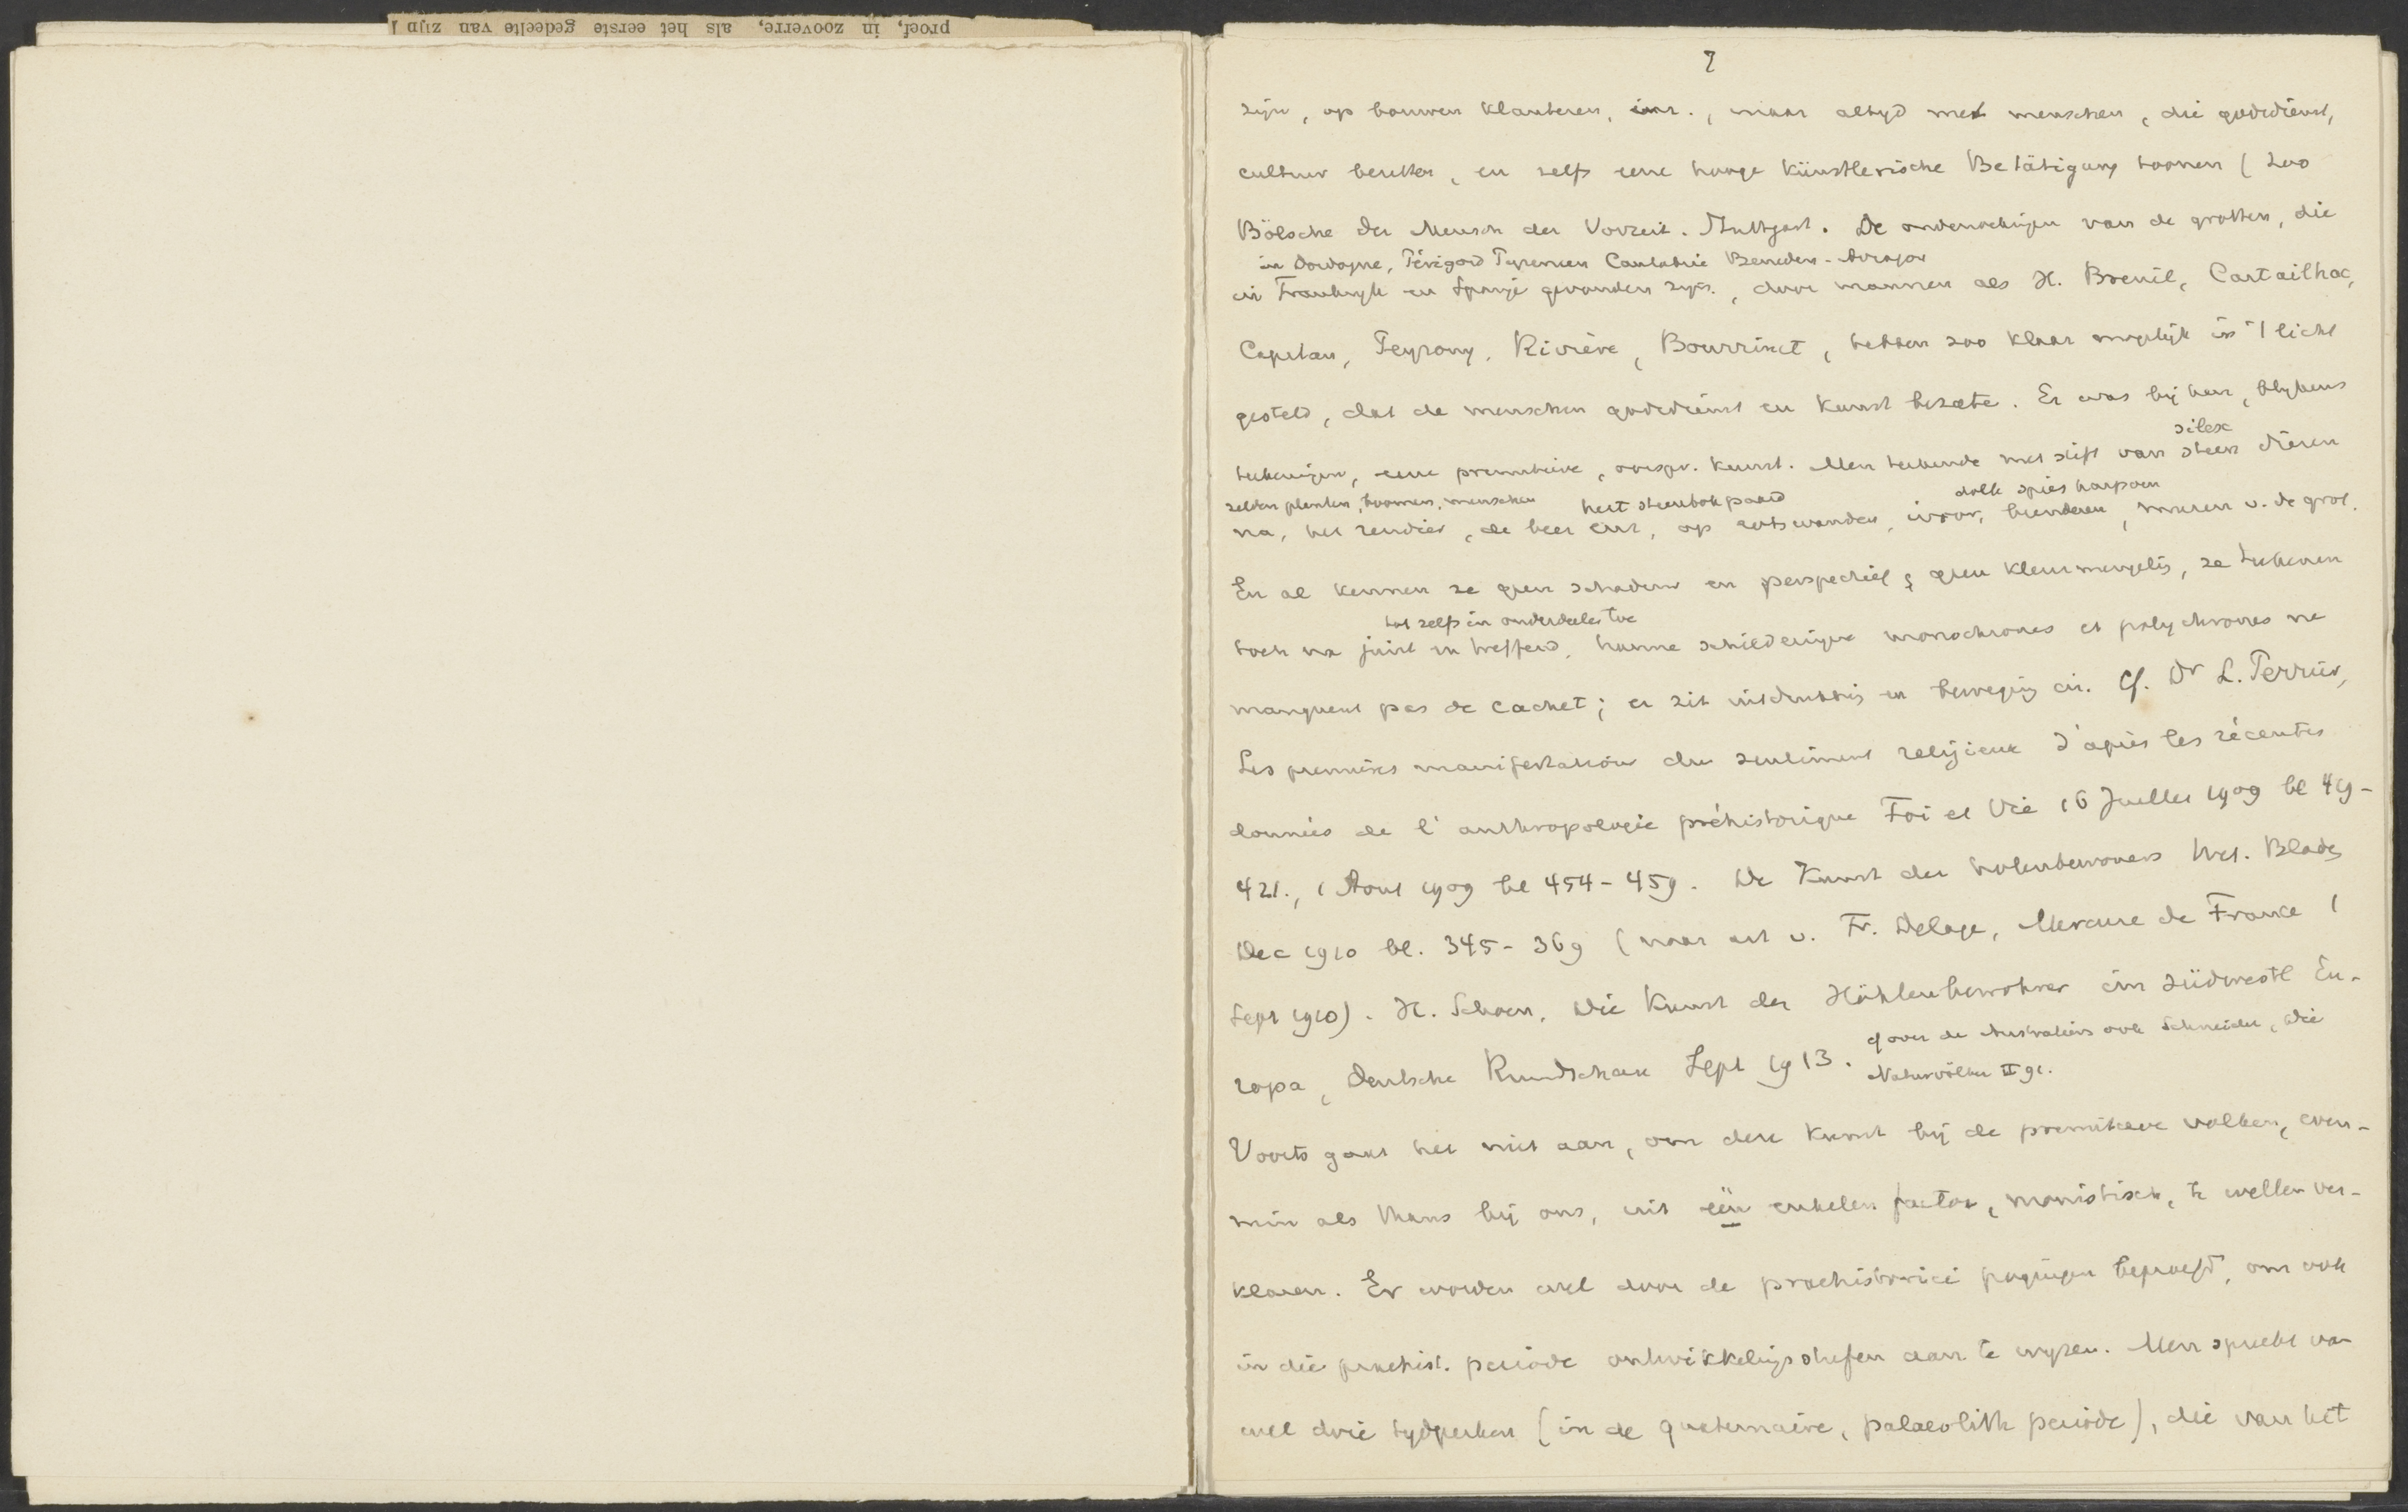 proef, in zooverre, als het eerste gedeelte van zijn
7
zijn, op boomen klauteren, enz., maar altyd met menschen, die godsdienst,
cultuur bezitten, en zelfs eene hooge künstlerische Betätigung toonen (zoo
Bölsche Der Mensch der Vorzeit. Stuttgart. De onderzoekingen van de grotten, die
in Dordogne, Périgord Pyreneen Cantabrië Beneden-
in Frankryk en Spanje gevonden zyn, door mannen als H. Breuil, Cartailhac,
Capitan, Peyrony, Rivière, Bourrinet, hebben zoo klaar mogelijk in 't licht
gesteld, dat de menschen godsdienst en kunst bezate. Er was bij hen, blykens
silex
teekeningen, eene primitieve, oorspr. kunst. Men teekende met stift van steen dieren
zelden planten, boomen, menschen hert steenbok paard dolk spies harpoen
na, het rendier, de beer enz, op rotswanden, ivoor, beenderen, muren v. de grot.
En al kennen ze geen schaduw en perspectief, geen kleurmengeling, ze teekenen
tot zelfs in onderdeelen toe
toch na juist en treffend, hunne schilderingen monochromes et polychromes ne
manquent pas de cachet; er zit uitdrukking en beweging in. Cf. Dr L. Perrier,
Les premières manifestations du sentiment religieux d'après les récentes
données de l'anthropologie préhistorique Foi et Vie 16 Juillet 1909 bl 419-
421., 1 Aout 1909 bl 454-459. De Kunst der holenbewoners Wet. Bladen
Dec 1910 bl. 345-369 (naar art v. Fr. Delage, Mercure de France 1
Sept 1910). H. Schoen, Die Kunst der Höhlenbewohner im südwestl Eu-
ropa, Deutsche Rundschau Sept 1913. cf over de Australiers ook Schneider, Die
Naturvölker II 91.
Voorts gaat het niet aan, om deze kunst bij de primitieve volken, even-
min als thans bij ons, uit één enkelen factor, monistisch, te willen ver-
klaren. Er worden wel door de praehistorici pogingen beproefd, om ook
in die praehist. periode ontwikkelingstrappen aan te wyzen. Men spreekt van
wel drie tydperken (in de quaternaire, palaeolith periode), die van het